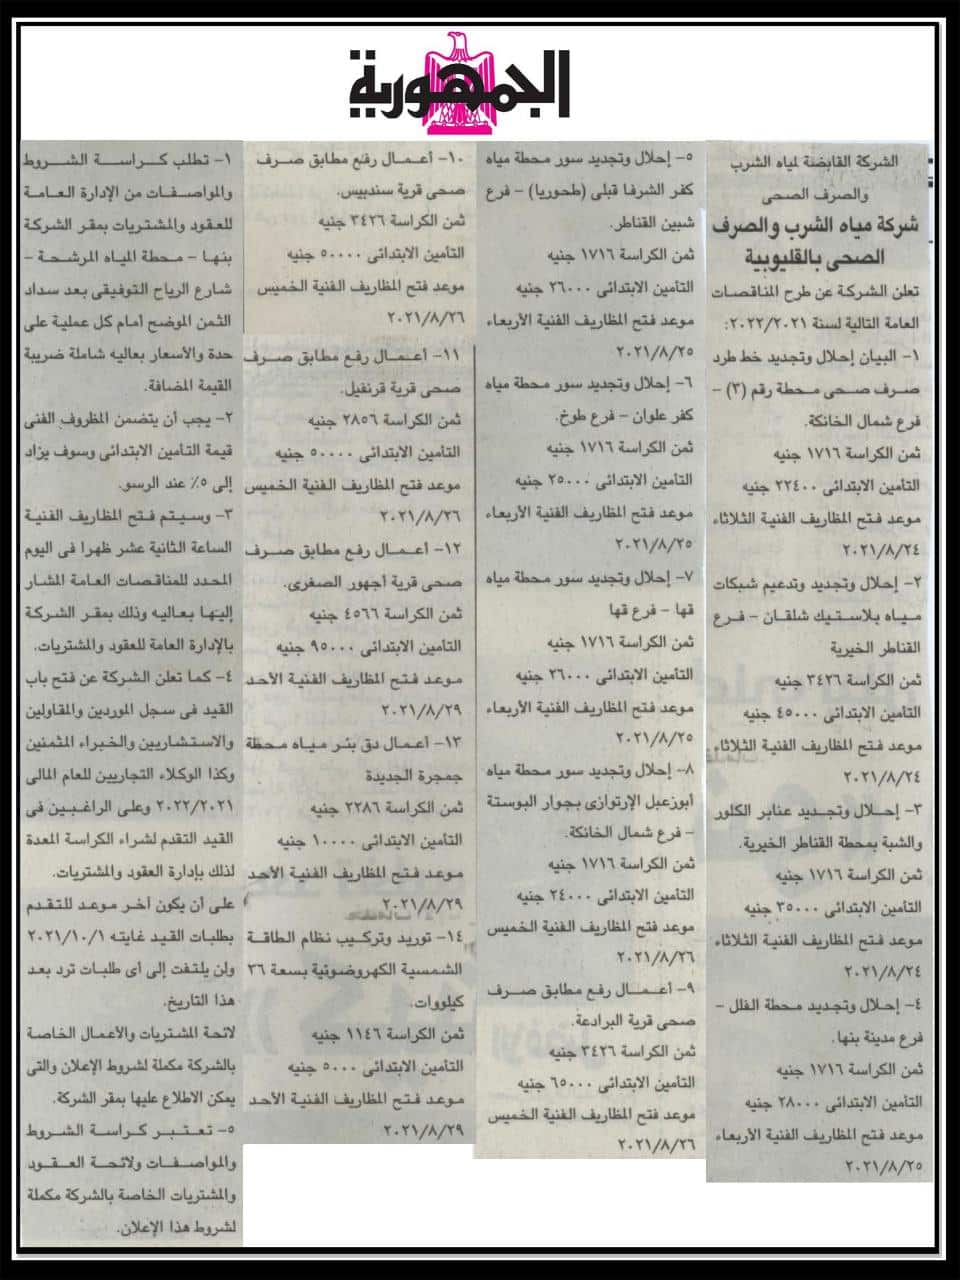 الجمهورية
الشركة القابضة لمياه الشرب
والصرف الصحى
شركة مياه الشرب والصرف
الصحى بالقليوبية
تعلن الشركة عن طرح المناقصات
العامة التالية لسنة ٢٠٢٢/٢٠٢١:
١- البيان إحلال وتجديد خط طرد
صرف صحى محطة رقم (٣) -
فرع شمال الخانكة.
ثمن الكراسة ١٧١٦ جنيه
التأمين الابتدائى ٢٢٤٠٠ جنيه
موعد فتح المظاريف الفنية الثلاثاء
٢٠٢١/٨/٢٤
٢- إحلال وتجديد وتدعيم شبكات
مياه بلاستيك شلقان - فرع
القناطر الخيرية
ثمن الكراسة ٣٤٢٦ جنيه
التأمين الابتدائى ٤٥٠٠٠ جنيه
موعد فتح المظاريف الفنية الثلاثاء
٢٠٢١/٨/٢٤
٣- إحلال وتجديد عنابر الكلور
والشبة بمحطة القناطر الخيرية.
ثمن الكراسة ١٧١٦ جنيه
التأمين الابتدائى ٣٥٠٠٠ جنيه
موعد فتح المظاريف الفنية الثلاثاء
٢٠٢١/٨/٢٤
٤- إحلال وتجديد محطة الفلل -
فرع مدينة بنها.
ثمن الكراسة ١٧١٦ جنيه
التأمين الابتدائى ٢٨٠٠٠ جنيه
موعد فتح المظاريف الفنية الأربعاء
٢٠٢١/٨/٢٥
٥- إحلال وتجديد سور محطة مياه
كفر الشرفا قبلى (طحوريا) - فرع
شبين القناطر.
ثمن الكراسة ١٧١٦ جنيه
التأمين الابتدائى ٢٦٠٠٠ جنيه
موعد فتح المظاريف الفنية الأربعاء
٢٠٢١/٨/٢٥
٦- إحلال وتجديد سور محطة مياه
كفر علوان - فرع طوخ.
ثمن الكراسة ١٧١٦ جنيه
التأمين الابتدائى ٢٥٠٠٠ جنيه
موعد فتح المظاريف الفنية الأربعاء
٢٠٢١/٨/٢٥
٧- إحلال وتجديد سور محطة مياه
قها - فرع قها
ثمن الكراسة ١٧١٦ جنيه
التأمين الابتدائى ٢٦٠٠٠ جنيه
موعد فتح المظاريف الفنية الأربعاء
٢٠٢١/٨/٢٥
٨- إحلال وتجديد سور محطة مياه
أبوزعبل الإرتوازى بجوار البوستة
- فرع شمال الخانكة.
ثمن الكراسة ١٧١٦ جنيه
التأمين الابتدائى ٢٤٠٠٠ جنيه
موعد فتح المظاريف الفنية الخميس
٢٠٢١/٨/٢٦
٩- أعمال رفع مطابق صرف
صحى قرية البرادعة.
ثمن الكراسة ٣٤٢٦ جنيه
التأمين الابتدائى ٦٥٠٠٠ جنيه
موعد فتح المظاريف الفنية الخميس
٢٠٢١/٨/٢٦
١٠- أعمال رفع مطابق صرف
صحى قرية سندبيس.
ثمن الكراسة ٣٤٢٦ جنيه
التأمين الابتدائى ٥٠٠٠٠ جنيه
موعد فتح المظاريف الفنية الخميس
٢٠٢١/٨/٢٦
١١- أعمال رفع مطابق صرف
صحى قرية قرنفيل.
ثمن الكراسة ٢٨٥٦ جنيه
التأمين الابتدائى ٥٠٠٠٠ جنيه
موعد فتح المظاريف الفنية الخميس
٢٠٢١/٨/٢٦
١٢- أعمال رفع مطابق صرف
صحى قرية أجهور الصغرى.
ثمن الكراسة ٤٥٦٦ جنيه
التأمين الابتدائى ٩٥٠٠٠ جنيه
موعد فتح المظاريف الفنية الأحد
٢٠٢١/٨/٢٩
١٣- أعمال دق بئر مياه محطة
جمجرة الجديدة
ثمن الكراسة ٢٢٨٦ جنيه
التأمين الابتدائى ١٠٠٠٠ جنيه
موعد فتح المظاريف الفنية الأحد
٢٠٢١/٨/٢٩
١٤- توريد وتركيب نظام الطاقة
الشمسية الكهروضوئية بسعة ٣٦
كيلووات.
ثمن الكراسة ١١٤٦ جنيه
التأمين الابتدائى ٥٠٠٠ جنيه
موعد فتح المظاريف الفنية الأحد
٢٠٢١/٨/٢٩
١- تطلب كراسة الشروط
والمواصفات من الإدارة العامة
للعقود والمشتريات بمقر الشركة
بنها - محطة المياه المرشحة -
شارع الرياح التوفيقى بعد سداد
الثمن الموضح أمام كل عملية على
حدة والأسعار بعاليه شاملة ضريبة
القيمة المضافة.
٢- يجب أن يتضمن المظروف الفنى
قيمة التأمين الابتدائى وسوف يزاد
إلى ٥٪ عند الرسو.
٣- وسيتم فتح المظاريف الفنية
الساعة الثانية عشر ظهرا فى اليوم
المحدد للمناقصات العامة المشار
إليها بعاليه وذلك بمقر الشركة
بالإدارة العامة للعقود والمشتريات.
٤- كما تعلن الشركة عن فتح باب
القيد فى سجل الموردين والمقاولين
والاستشاريين والخبراء المثمنين
وكذا الوكلاء التجاريين للعام المالى
٢٠٢٢/٢٠٢١ وعلى الراغبين فى
القيد التقدم لشراء الكراسة المعدة
لذلك بإدارة العقود والمشتريات.
على أن يكون أخر موعد للتقدم
بطلبات القيد غايته ٢٠٢١/١٠/١
ولن يلتفت إلى أى طلبات ترد بعد
هذا التاريخ.
لائحة المشتريات والأعمال الخاصة
بالشركة مكملة لشروط الإعلان والتى
يمكن الاطلاع عليها بمقر الشركة.
٥- تعتبر كراسة الشروط
والمواصفات ولائحة العقود
والمشتريات الخاصة بالشركة مكملة
لشروط هذا الإعلان.